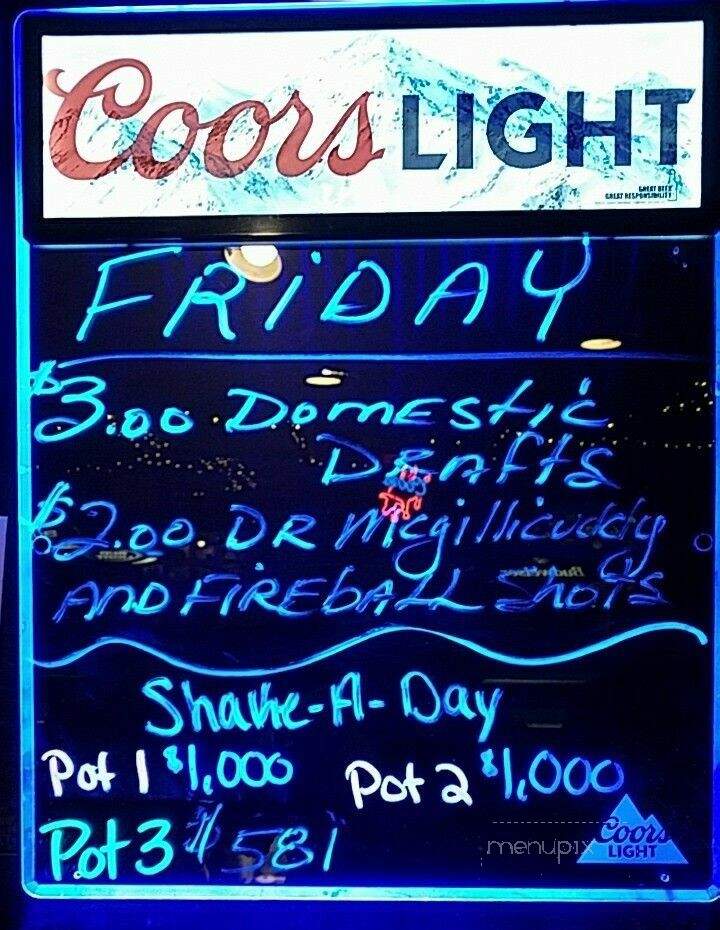 Coors LIGHT
GREAT BEER
GREAT RESPONSIBILITY
FRIDAY
$3.00 Domestic
Drafts
$2.00 DR Mcgillicuddy
AND FIREBALL Shots
Budweiser
Shake-A-Day
Pot 1 $1,000 Pot 2 $1,000
Pot 3 $581
menupix
Coors
LIGHT